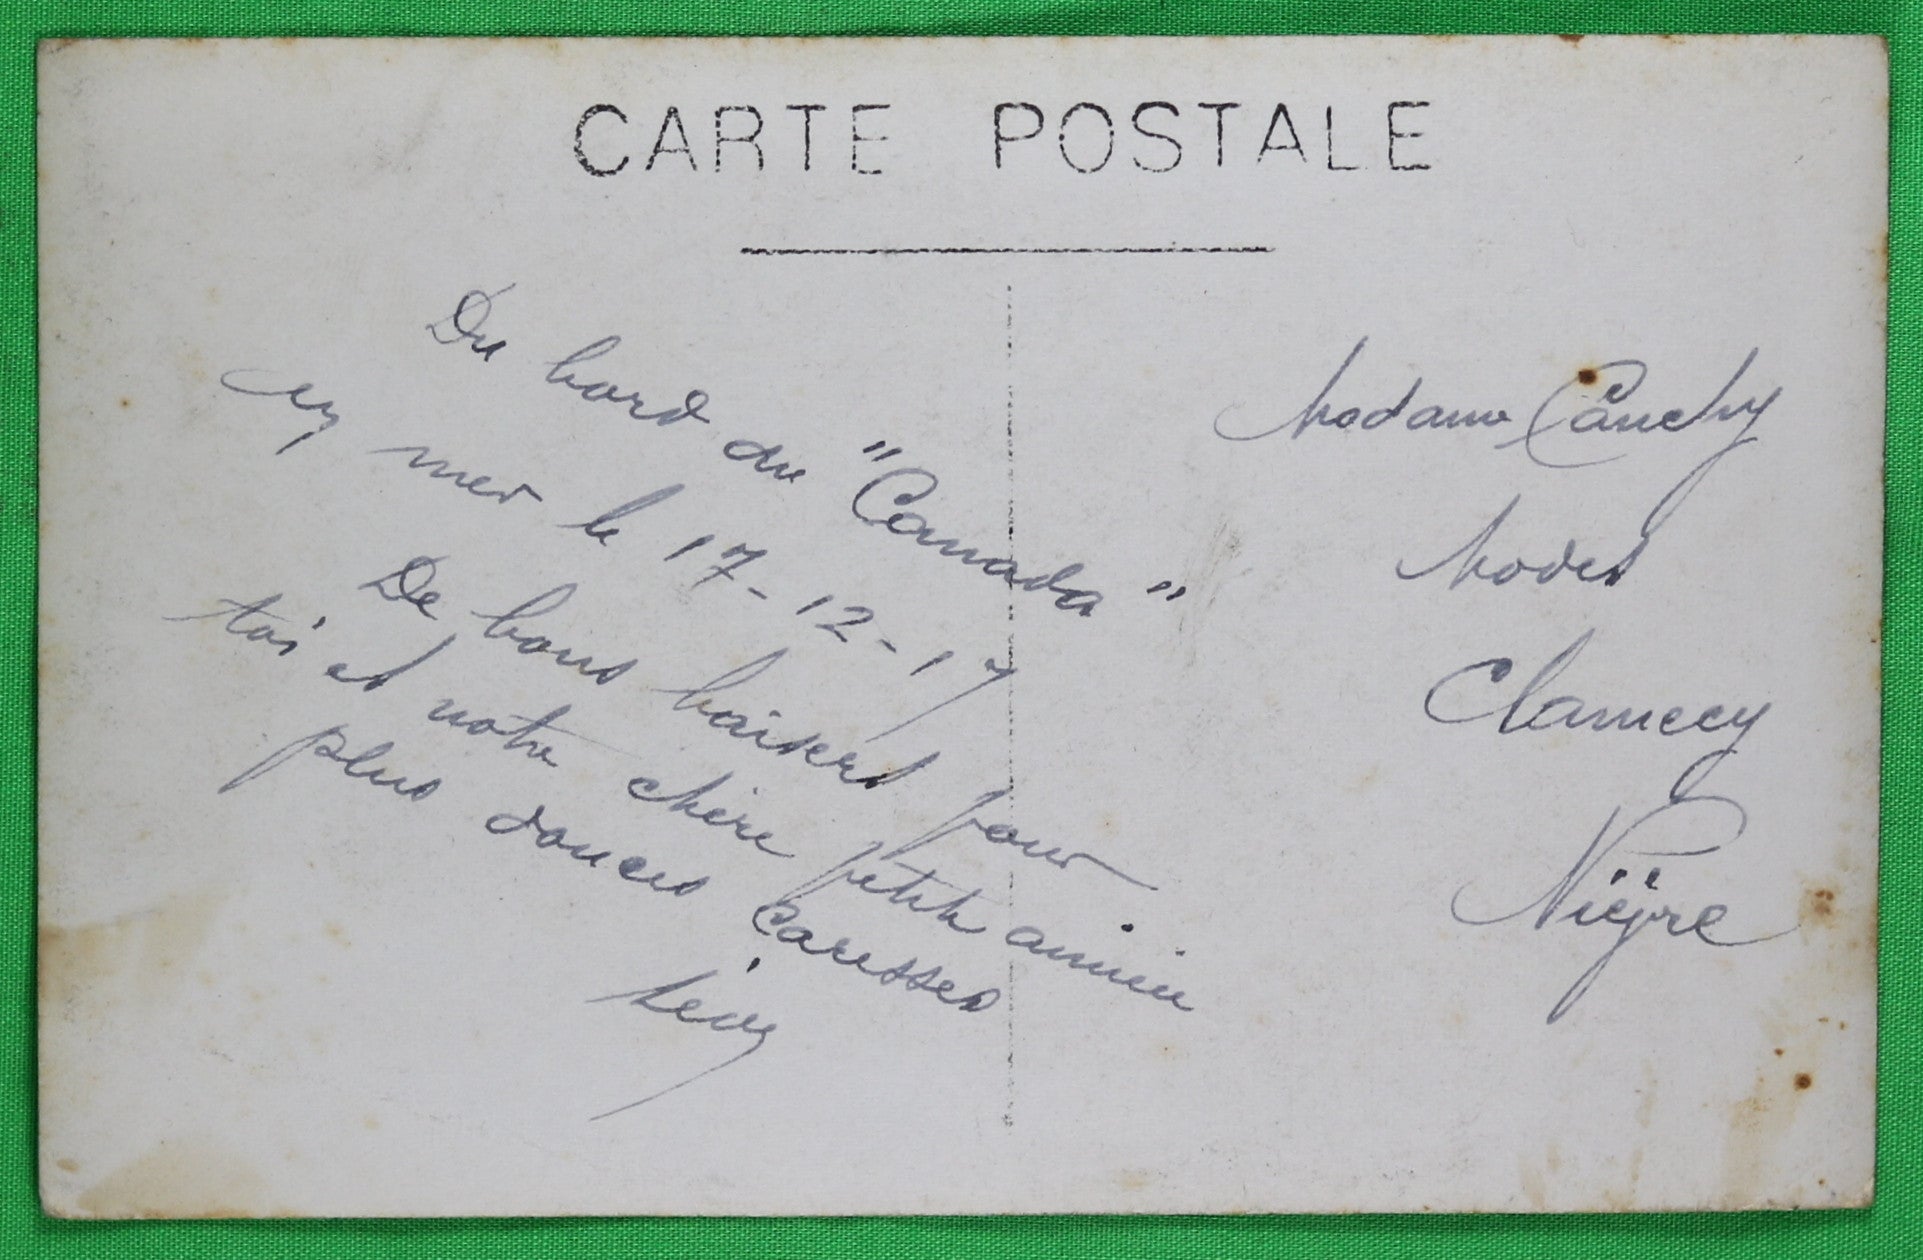 CARTE POSTALE
Du bord du "Canada"
en mer le 17-12-17
De bons baisers pour
toi et notre chère petite amie
plus douces caresses
Léon
Madame Cauchy
Modes
Clamecy
Nièvre